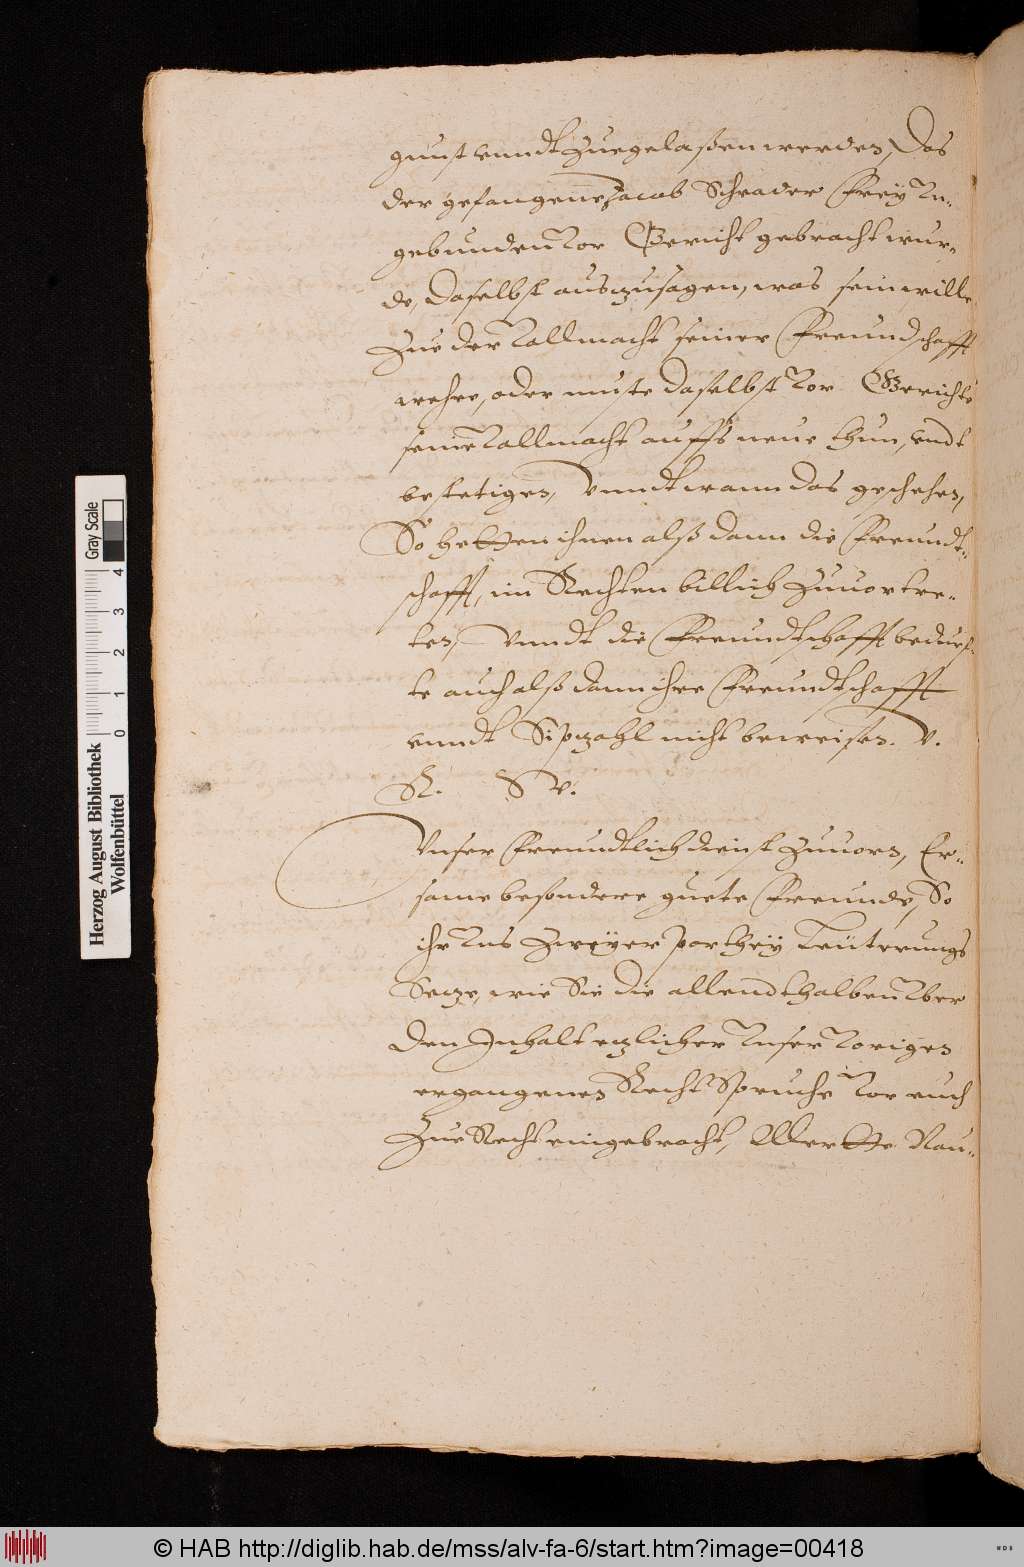 gunst vnndt Zuegelaßen werden, Das
der gefangene Jacob Schrader Frey Vn-
gebunden Vor Gericht gebracht wur-
de, Daselbst auszusagen, was sein wille
Zue der Vollmacht seiner Freundschafft
wehre, oder muste daselbst Vor Gerichte
seine Vollmacht auffs neue thun, vndt
bestetigen, Vnndt wann das geschehen,
So hetten ihnen alß dann die Freundt-
schafft, im Rechten billich Zuuortre-
ten, Vnndt die Freundtschafft bedurf-
te auch alß dann ihre Freundtschafft
vnndt Sipzahl nicht beweisen. V.
R. S V.
Vnser Freundtlich dienst Zuuorn, Er-
same besondere guete Freunde, So
ihr Vns Zweyer parthey Leuterungs
Setze, wie Sie die allendthalben Vber
Den Inhalt etzlicher Vnser Vorigen
ergangenen Recht Spruche Vor euch
Zue Recht eingebracht,
Gray Scale
0 1 2 3 4
Herzog August Bibliothek
Wolfenbüttel
© HAB http://diglib.hab.de/mss/alv-fa-6/start.htm?image=00418